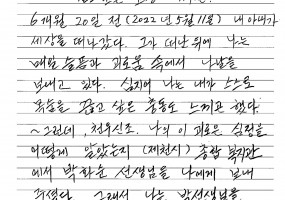 6개월 20일 전 (2022년 5월 11일) 내 아내가
세상을 떠나갔다. 그가 떠난 뒤에 나는
매일 슬픔과 괴로움 속에서 나날을
보내고 있다. 심지어 나는 내가 스스로
목숨을 끊고 싶은 충동도 느끼곤 했다.
~그런데, 천우신조, 나의 이 괴로운 심정을
어떻게 알았는지 (제천시) 종합 복지관
에서 박화순 선생님을 나에게 보내
주셨다. 그래서 나는 박선생님을